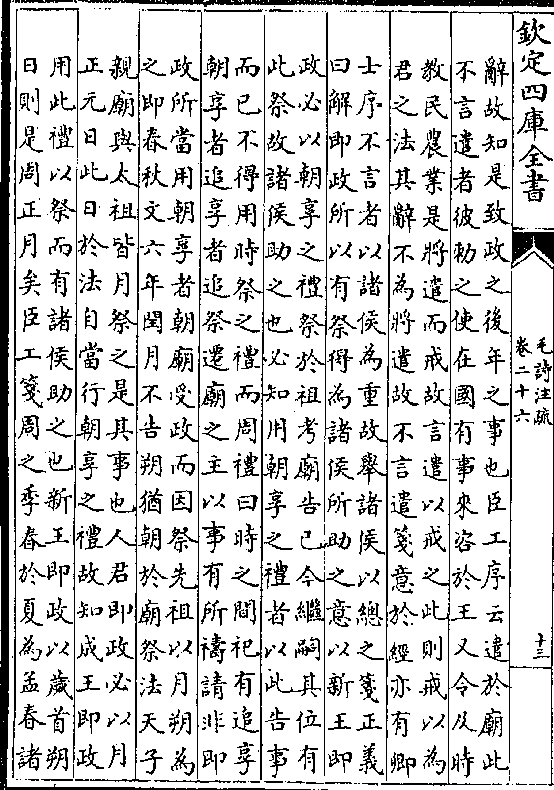 欽定四庫全書
毛詩注疏
卷二十六
十三
辭故知是致政之後年之事也臣工序云遣於廟此
不言遣者彼勑之使在國有事來咨於王又令及時
教民農業是將遣而戒故言遣以戒之此則戒以為
君之法其辭不為將遣故不言遣箋意於經亦有卿
士序不言者以諸侯為重故舉諸侯以總之箋正義
曰解即政所以有祭得為諸侯所助之意以新王即
政必以朝享之禮祭於祖考廟告己今繼嗣其位有
此祭故諸侯助之也必知用朝享之禮者以此告事
而已不得用時祭之禮而周禮曰時之間祀有追享
朝享者追享者追祭遷廟之主以事有所禱請非即
政所當用朝享者朝廟受政而因祭先祖以月朔為
之即春秋文六年閏月不告朔猶朝於廟祭法天子
親廟與太祖皆月祭之是其事也人君即政必以月
正元日此日於法自當行朝享之禮故知成王即政
用此禮以祭而有諸侯助之也新王即政以歲首朔
日則是周正月矣臣工箋周之季春於夏為孟春諸